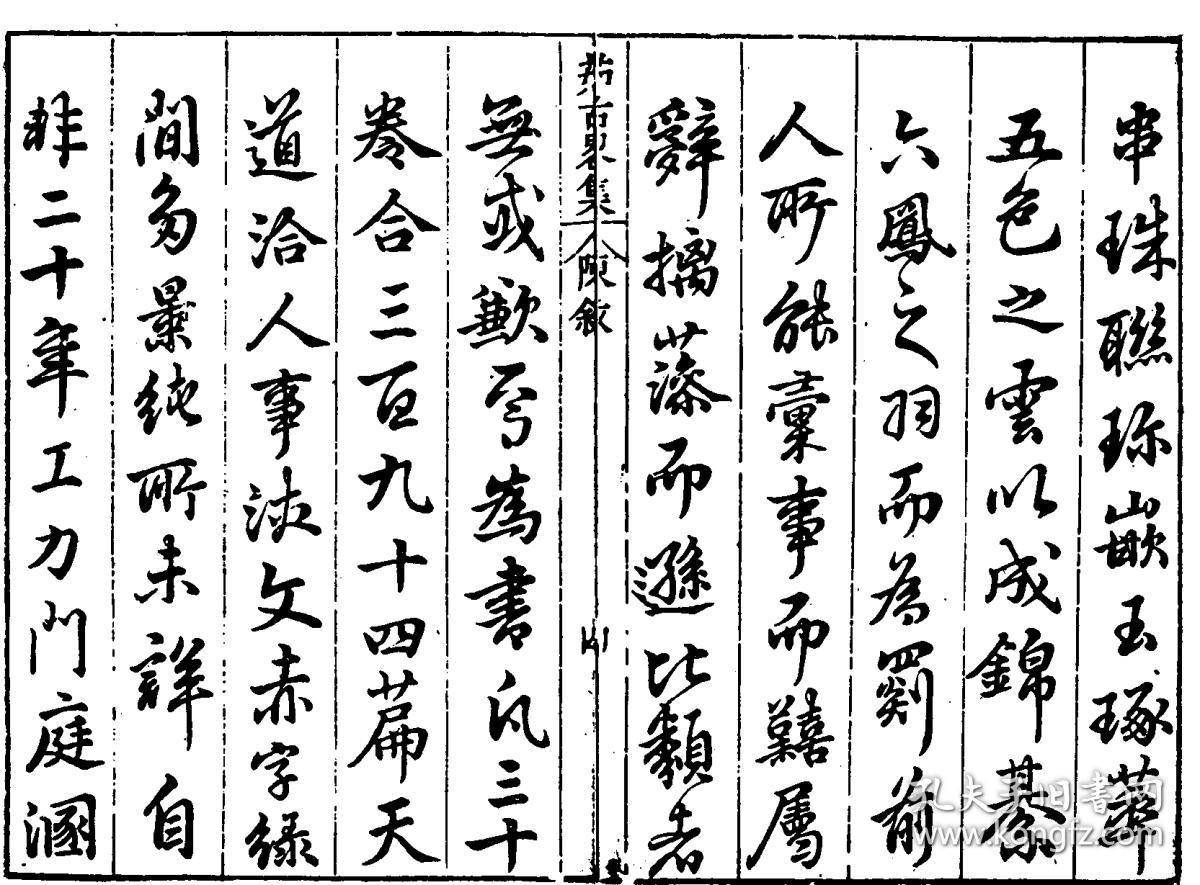 串珠聯珎嵌玉琢華
五色之雲以成錦綦
六鳳之羽而為罽前
人所能彙事而囏屬
辭摛藻而遜比類者
古集 陳敘
無或歉兮為書凡三十
卷合三百九十四萹天
道洽人事浹文赤字綠
間多景純所未詳自
非二十年工力門庭溷
孔夫子旧书网
www.kongfz.com